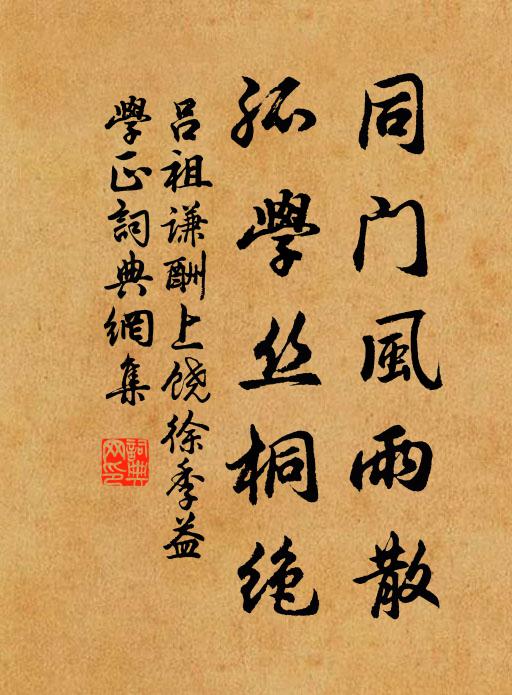 同门風雨散
孤學丝桐绝
吕祖谦酬上饶徐季益
學正詞典網集
詞典网印